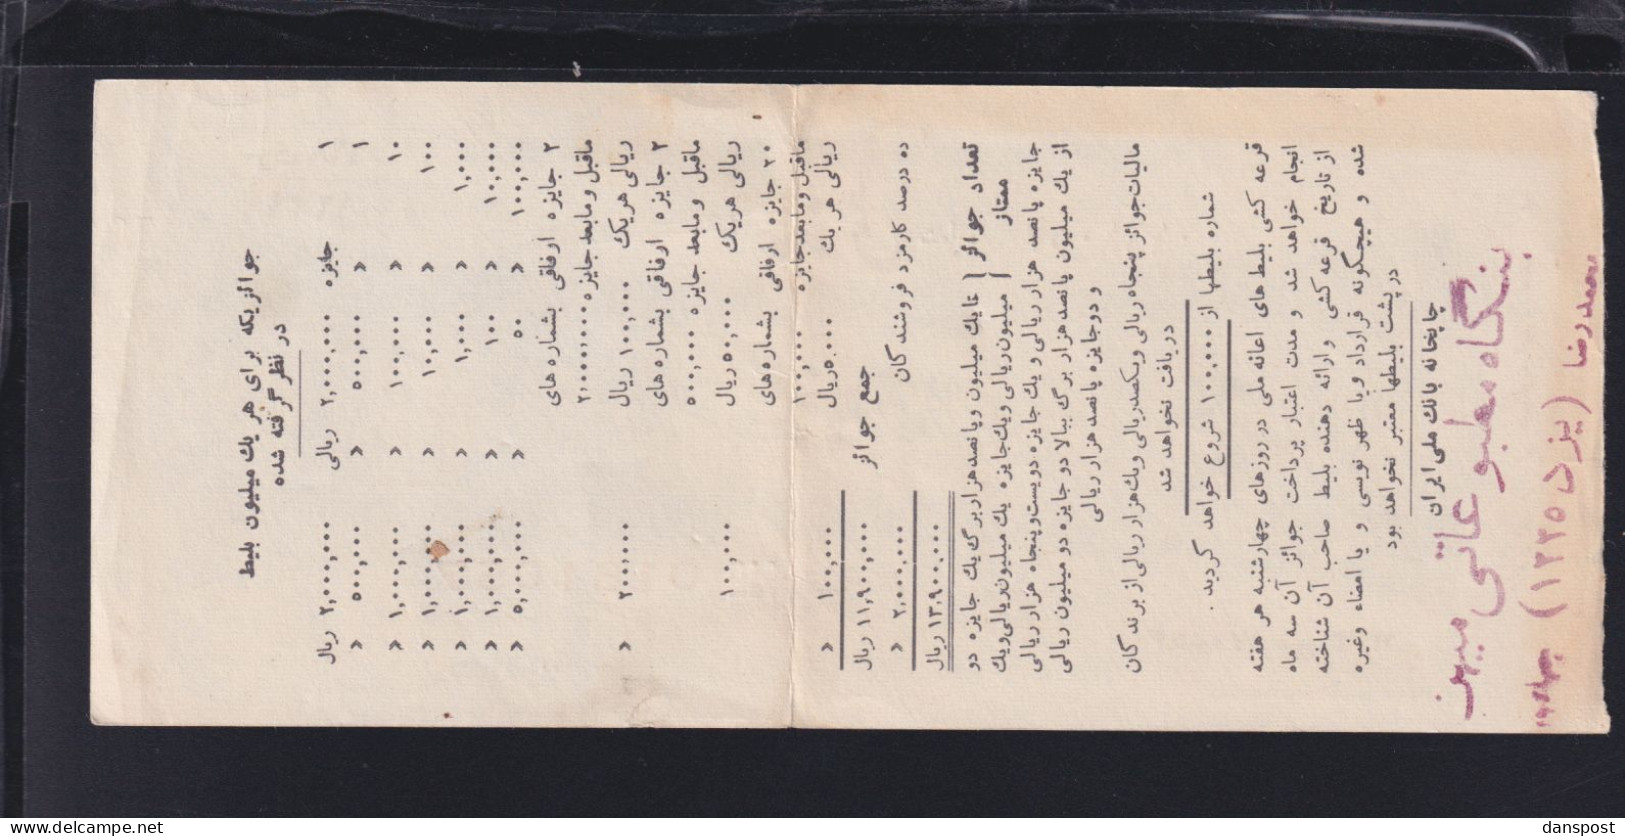 جوائزیکه برای هر یك میلیون بلیط
در نظر گرفته شده
۱ جایزه ۲,۰۰۰,۰۰۰ ریالی ۲,۰۰۰,۰۰۰ ریال
۱ » ۵۰۰,۰۰۰ » ۵۰۰,۰۰۰ »
۱۰ » ۱۰۰,۰۰۰ » ۱,۰۰۰,۰۰۰ »
۱۰۰ » ۱۰,۰۰۰ » ۱,۰۰۰,۰۰۰ »
۱,۰۰۰ » ۱,۰۰۰ » ۱,۰۰۰,۰۰۰ »
۱۰,۰۰۰ » ۱۰۰ » ۱,۰۰۰,۰۰۰ »
۱۰۰,۰۰۰ » ۵۰ ۵,۰۰۰,۰۰۰ »
۲ جایزه ارفاقی بشماره های
ماقبل و مابعد جایزه ۲,۰۰۰,۰۰۰
ریالی هریك ۱۰۰,۰۰۰ ریال ۲۰۰,۰۰۰ »
۲ جایزه ارفاقی بشماره های
ماقبل و مابعد جایزه ۵۰۰,۰۰۰
ریالی هریك ۵۰,۰۰۰ ریال ۱۰۰,۰۰۰
۲۰ جایزه ارفاقی بشماره های
ماقبل و مابعد جایزه ۱۰۰,۰۰۰
ریالی هریك ۵,۰۰۰ ریال ۱۰۰,۰۰۰ »
جمع جوائز ۱۱,۹۰۰,۰۰۰ ریال
ده درصد کارمزد فروشندگان ۲,۰۰۰,۰۰۰ »
۱۳,۹۰۰,۰۰۰ ریال
تعداد جوائز ممتاز { تا یك میلیون و پانصد هزار برگ یك جایزه دو
میلیون ریالی و یك جایزه یك میلیون ریالی و یك
جایزه پانصد هزار ریالی و یك جایزه دویست و پنجاه هزار ریالی
از یك میلیون پانصد هزار برگ ببالا دو جایزه دو میلیون ریالی
و دو جایزه پانصد هزار ریالی
مالیات جوائز پنجاه ریالی و یکصد ریالی و یك هزار ریالی از برندگان
دریافت نخواهد شد
شماره بلیطها از ۱۰۰,۰۰۰ شروع خواهد گردید .
قرعه کشی بلیط های اعانه ملی در روزهای چهارشنبه هر هفته
انجام خواهد شد و مدت اعتبار پرداخت جوائز آن سه ماه
از تاریخ قرعه کشی و ارائه دهنده بلیط صاحب آن شناخته
شده و هیچگونه قرارداد و یا ظهر نویسی و یا امضاء وغیره
در پشت بلیطها معتبر نخواهد بود
چاپخانه بانك ملی ایران
بنگاه مطبوعاتی میهن
محمدرضا (یزد ۱۳۳۵)